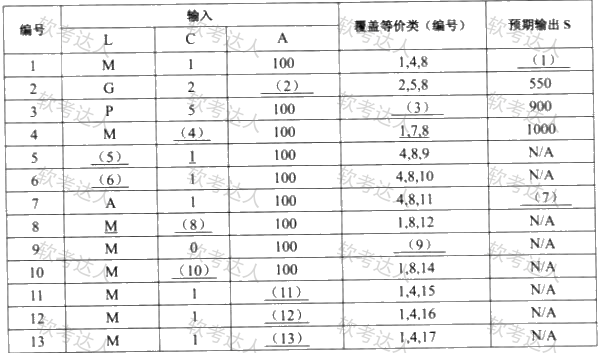 编号 输入 覆盖等价类（编号） 预期输出 S
L C A
1 M 1 100 1,4,8 （1）
2 G 2 （2） 2,5,8 550
3 P 5 100 （3） 900
4 M （4） 100 1,7,8 1000
5 （5） 1 100 4,8,9 N/A
6 （6） 1 100 4,8,10 N/A
7 A 1 100 4,8,11 （7）
8 M （8） 100 1,8,12 N/A
9 M 0 100 （9） N/A
10 M （10） 100 1,8,14 N/A
11 M 1 （11） 1,4,15 N/A
12 M 1 （12） 1,4,16 N/A
13 M 1 （13） 1,4,17 N/A
软考达人